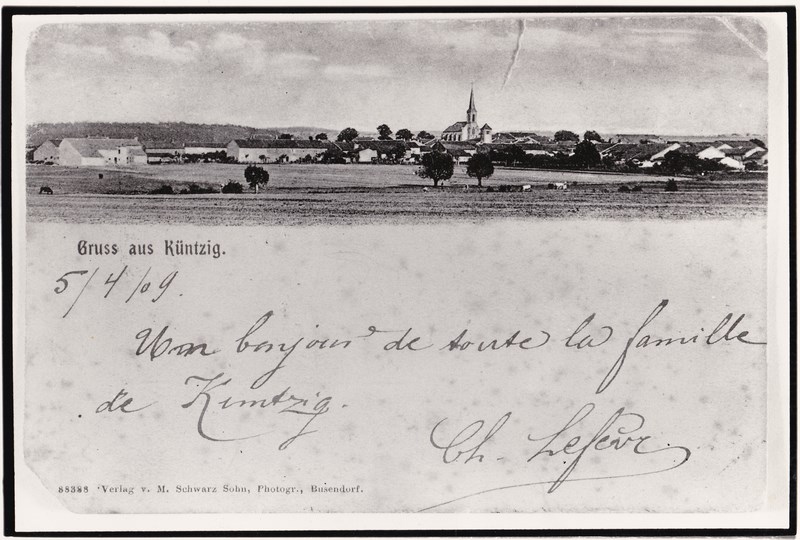 Gruss aus Küntzig.
5/4/09.
Un bonjour de toute la famille
de Kuntzig.
Ch. Lefèvr
88388 Verlag v. M. Schwarz Sohn, Photogr., Busendorf.